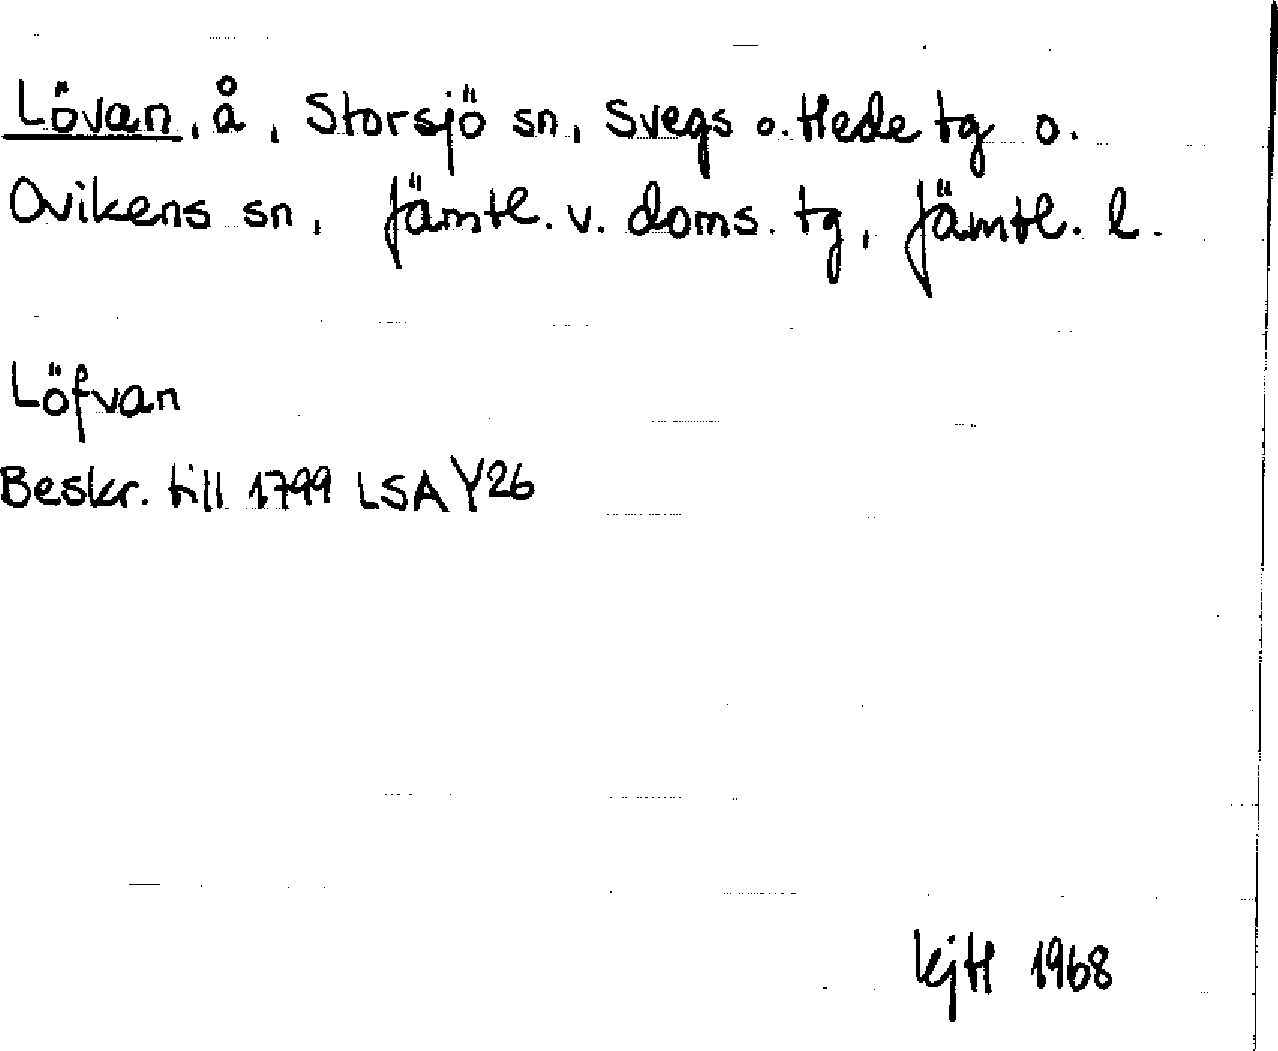 Lövan, å, Storsjö sn, Svegs o. Hede tg o.
Ovikens sn, Jämtl. v. doms. tg, Jämtl. l.
Löfvan
Beskr. till 1799 LSA Y26
KjH 1968